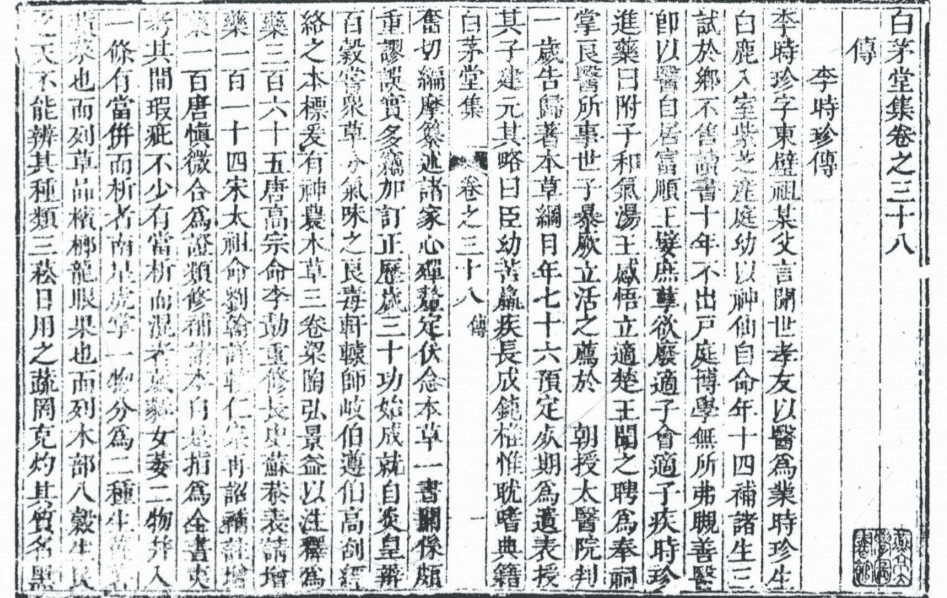 白茅堂集卷之三十八
傳
李時珍傳
李時珍字東璧祖某父言聞世孝友以醫為業時珍生
白鹿入室紫芝產庭幼以神仙自命年十四補諸生三
試於鄉不售讀書十年不出戶庭博學無所弗瞡善醫
卽以醫自居富順王嬖庶孽欲廢適子會適子疾時珍
進藥曰附子和氣湯王感悟立適楚王聞之聘為奉祠
掌良醫所事世子暴厥立活之薦於 朝授太醫院判
一歲告歸著本草綱目年七十六預定死期為遺表授
其子建元其略曰臣幼苦羸疾長成鈍椎惟耽嗜典籍
白茅堂集 卷之三十八 傳 一
奮切編摩纂述諸家心殫釐定伏念本草一書關係頗
重謬誤實多竊加訂正歷歲三十功始成就自炎皇辨
百穀嘗衆草分氣味之良毒軒轅師岐伯遵伯高剖經
絡之本標爰有神農本草三卷梁陶弘景益以注釋為
藥三百六十五唐高宗命李勣重修長史蘇恭表請增
藥一百一十四宋太祖命劉翰詳 仁宗再詔補註增
藥一百唐慎微合為證類修補 本自是指為全書夷
考其間瑕疵不少有當析而混者 女萎二物并入
一條有當併而析者南星虎掌一物分為二種生
菜也而列草品檳榔龍眼果也而列木部八穀生民
之天不能辨其種類三菘日用之蔬罔克灼其質名黑